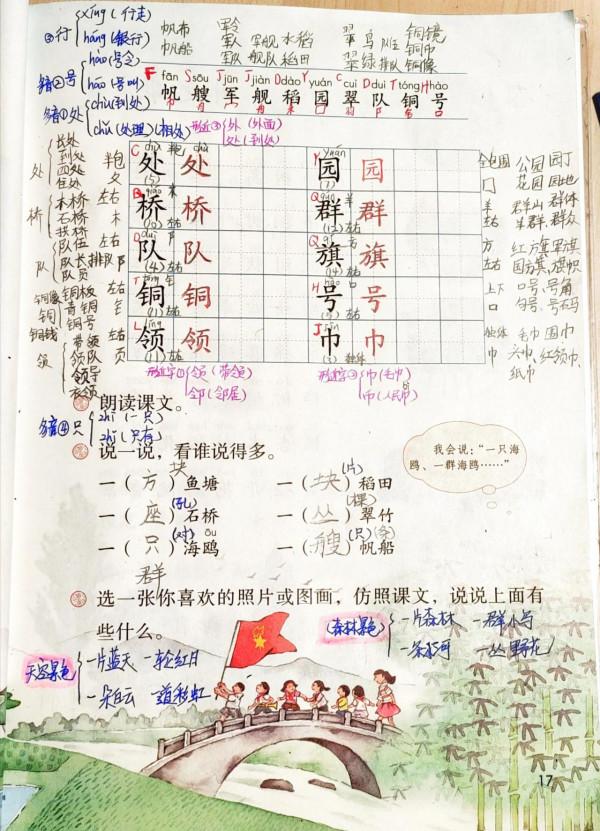 ③行 xíng (行走)
háng (银行)
帆布 帆船
军舰 水稻
军队 舰队 稻田
翠鸟 队班 铜镜
铜巾
翠绿 排队 铜像
多音②号 háo (号令)
hào (号叫)
fān Ssōu Jjūn Jjiàn Ddào Yyuán Ccuì Dduì Ttóng Hhào
帆 艘 军 舰 稻 园 翠 队 铜 号
多音①处 chù (到处)
chǔ (处理) (相处)
形近③ 外 (外面)
处 (到处)
处 长处 到处 四处 住处
半包 夂
处 处
园 园
全包围 口
公园 园丁
花园 园地
桥 木桥 石桥 拱桥
左右 木
桥 桥
群 群
羊 左右
群山 群体
羊群 群众
队 队伍 队长 排队 队员
左右 阝
队 队
旗 旗
方 左右
红旗 军旗
国旗 旗帜
铜像 铜 铜钱
铜板 青铜 铜号
左右 钅
铜 铜
号 号
上下 口
口号 号角
句号 号码
领 带领 领队 领导 衣领
左右 页
领 领
巾 巾
独体 巾
毛巾 围巾
头巾 红领巾
纸巾
形近字① 领 (带领)
邻 (邻居)
形近字② 巾 (毛巾)
币 (人民币)
朗读课文。
多音④只 zhī (一只)
zhǐ (只有)
说一说，看谁说得多。
我会说：“一只海鸥、一群海鸥……”
块 (片)
一（方）鱼塘 一（块）稻田
(孔) (棵)
一（座）石桥 一（丛）翠竹
(对) ōu (只) (条)
一（只）海鸥 一（艘）帆船
群
选一张你喜欢的照片或图画，仿照课文，说说上面有
些什么。
(森林景色) 一片森林 一群小鸟
一条小河 一丛野花
天空景色 一片蓝天 一轮红日
一朵白云 一道彩虹
17